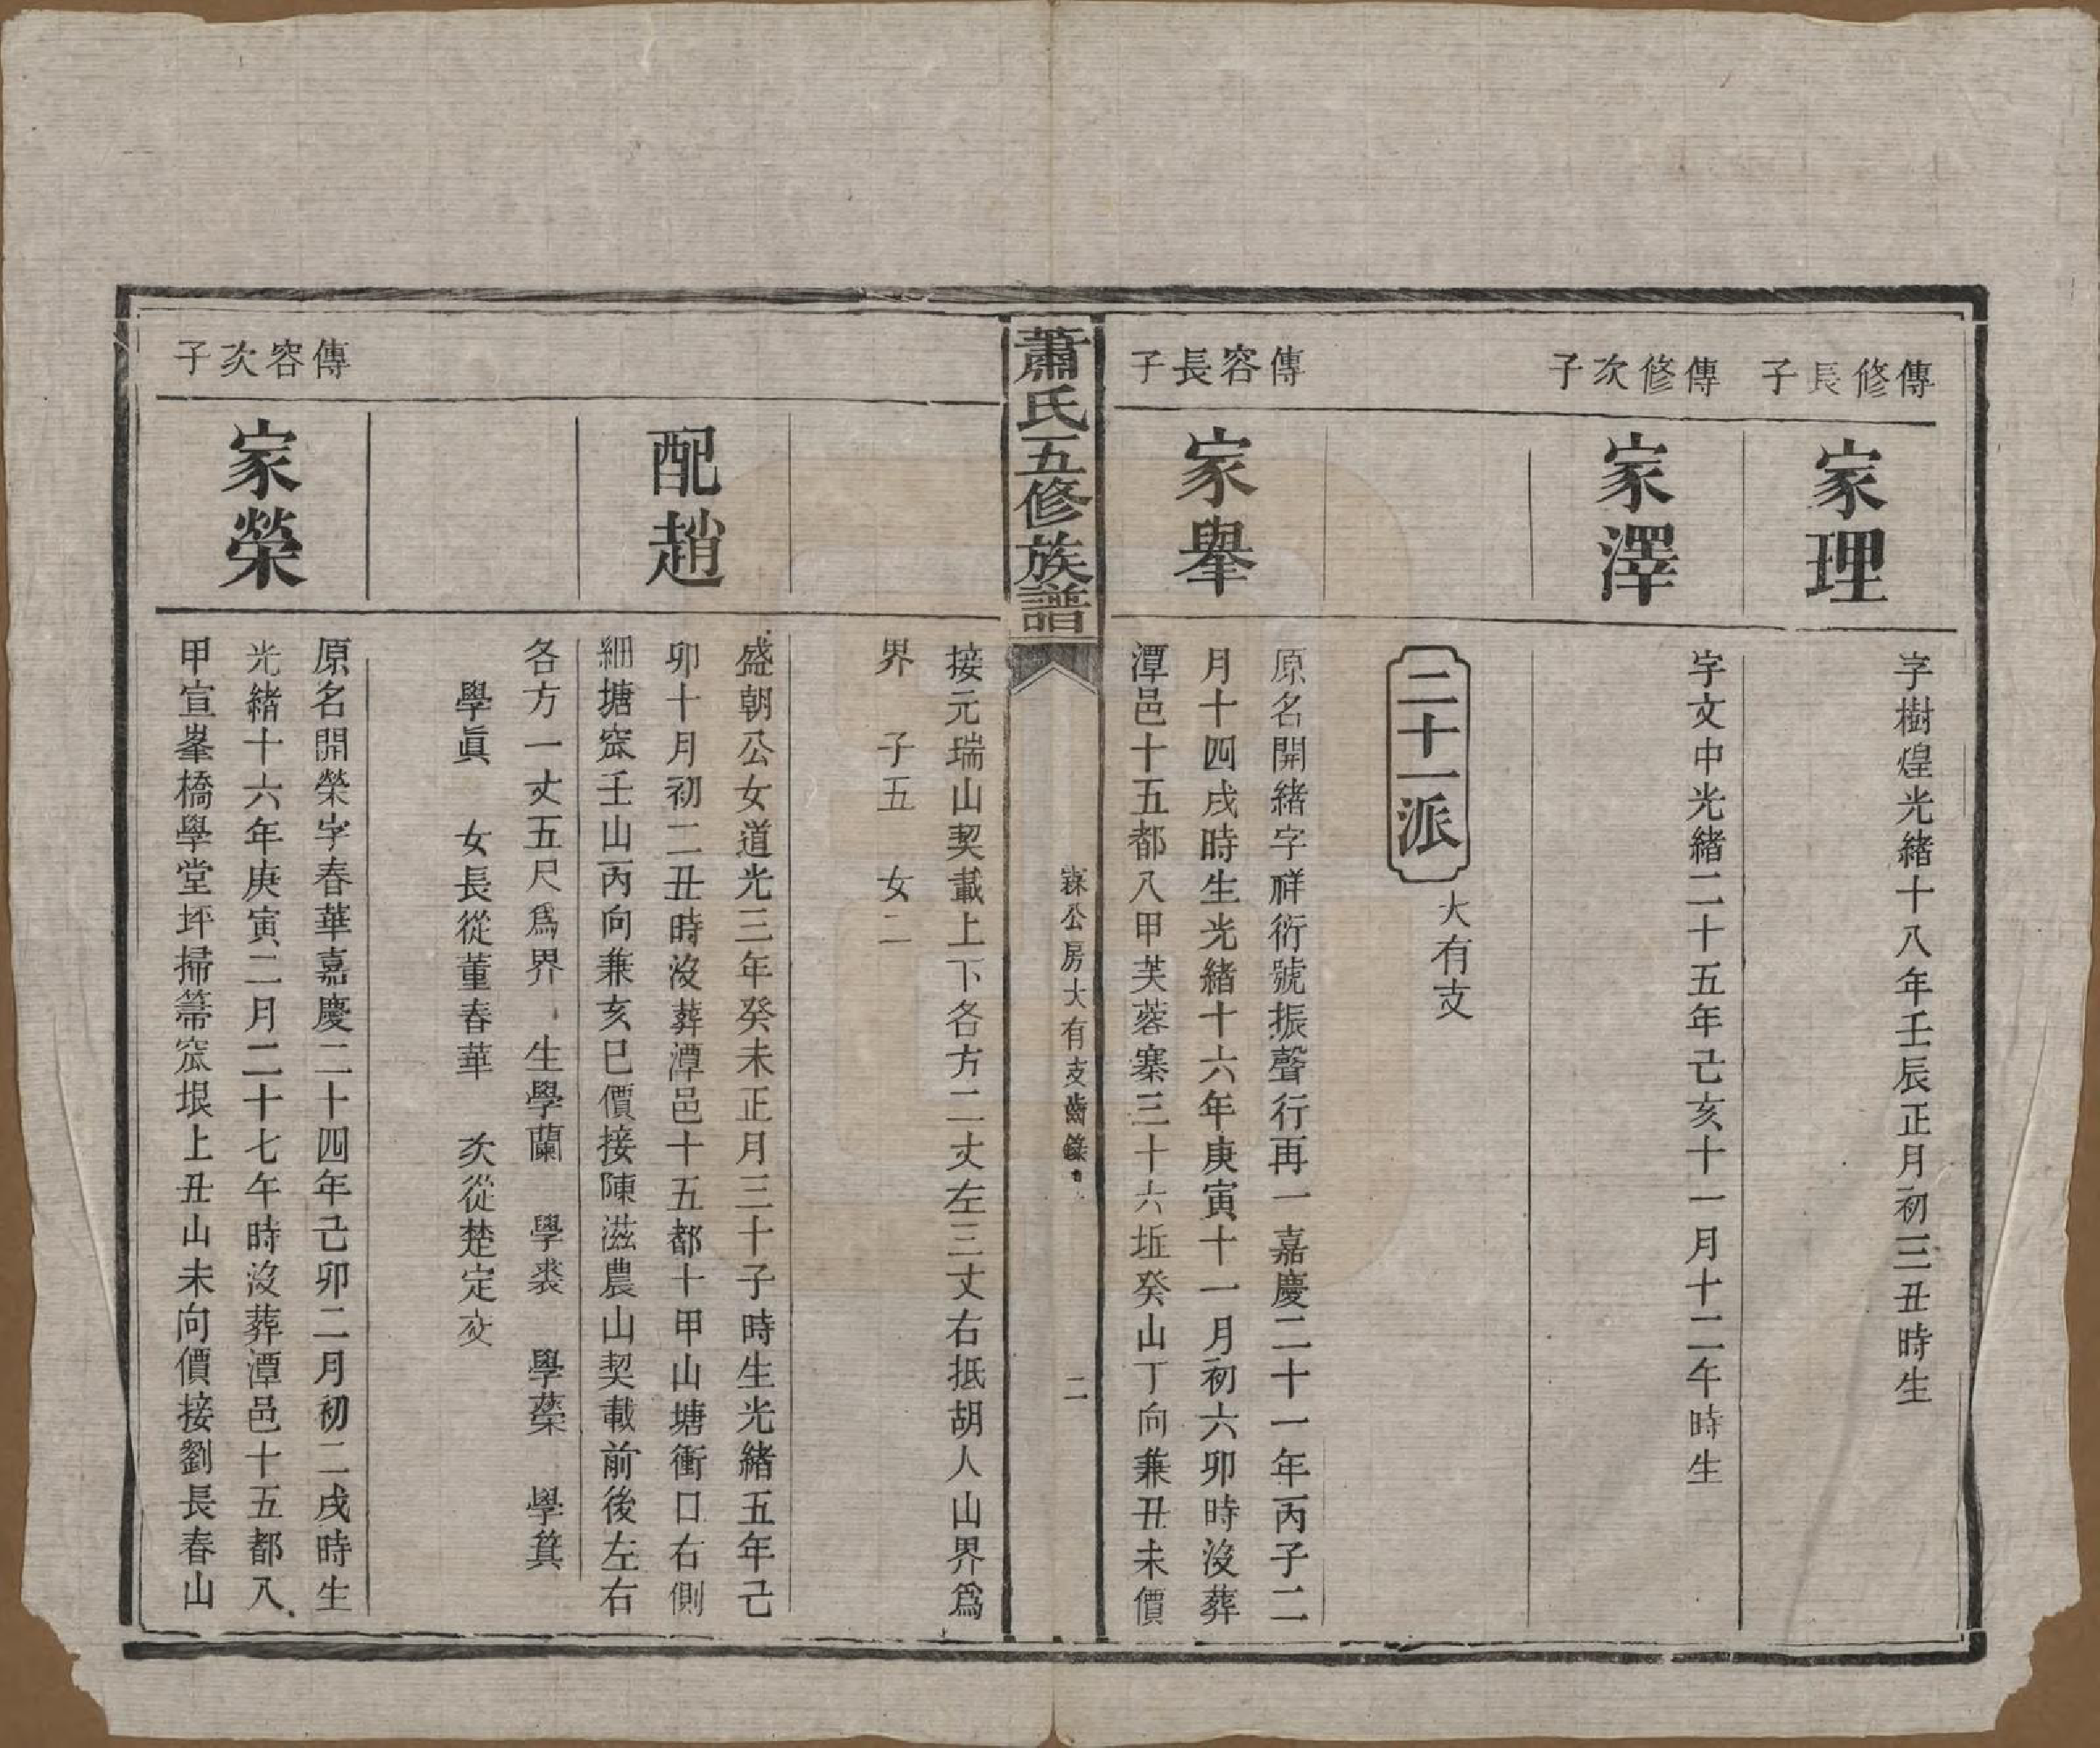 傳修長子
家理
字樹煌光緒十八年壬辰正月初三丑時生
傳修次子
家澤
字文中光緒二十五年己亥十一月十二午時生
二十一派
大有支
傳容長子
家舉
原名開緒字祥衍號振聲行再一嘉慶二十一年丙子二
月十四戌時生光緒十六年庚寅十一月初六卯時沒葬
潭邑十五都八甲芙蓉寨三十六坵癸山丁向兼丑未價
蕭氏五修族譜
公房大有支齒錄
二
接元瑞山契載上下各方二丈左三丈右抵胡人山界爲
界 子五 女二
配趙
盛朝公女道光三年癸未正月三十子時生光緒五年己
卯十月初二丑時沒葬潭邑十五都十甲山塘衝口右側
細塘窊壬山丙向兼亥巳價接陳滋農山契載前後左右
各方一丈五尺爲界 生學蘭 學裘 學蘂 學箕
學眞 女長從董春華 次從楚定交
傳容次子
家榮
原名開榮字春華嘉慶二十四年己卯二月初二戌時生
光緒十六年庚寅二月二十七午時沒葬潭邑十五都八
甲宣峯橋學堂坪掃箒窊垠上丑山未向價接劉長春山